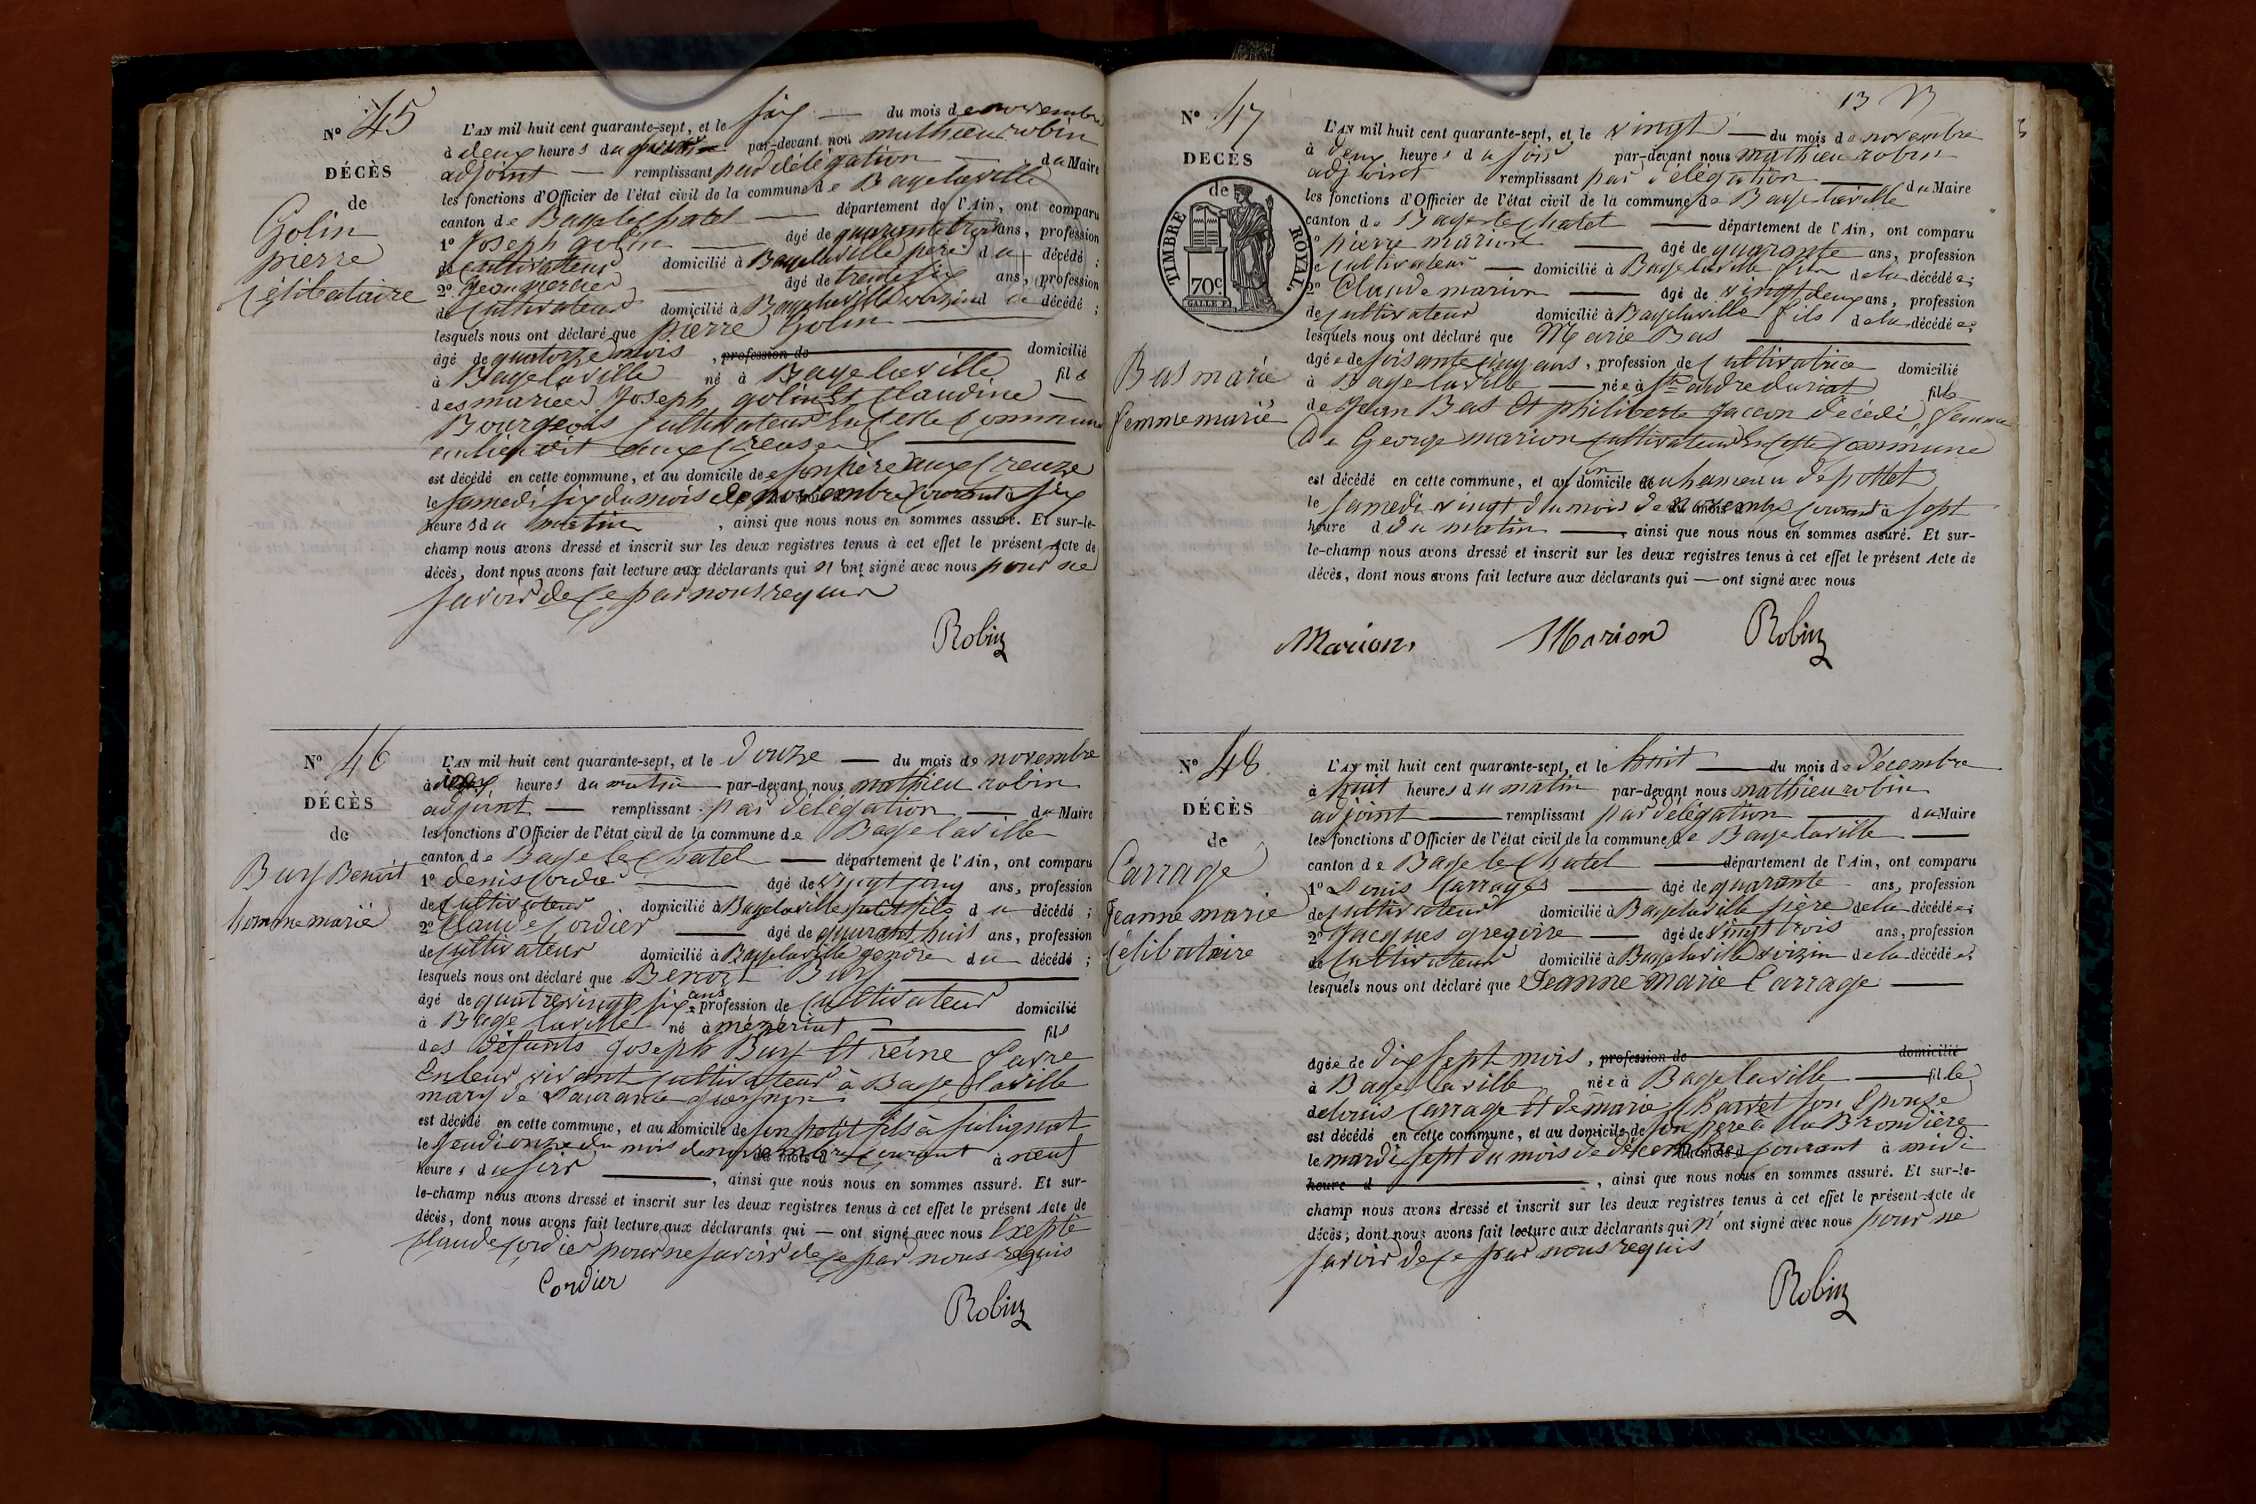 N.o 45
DÉCÈS
de
Golin
pierre
Célibataire
L'AN mil huit cent quarante-sept, et le six — du mois de novembre
à deux heures du par-devant nous mathieu robin
adjoint — remplissant par délégation — du Maire
les fonctions d'Officier de l'état civil de la commune de Bagelaville
canton de Bagelechatel — département de l'Ain, ont comparu
1o Joseph golin — âgé de quarante trois ans, profession
de cultivateur domicilié à Bagelaville père du décédé ;
2o âgé de trente six ans, profession
de cultivateur domicilié à Bagelaville voizin du décédé ;
lesquels nous ont déclaré que pierre Golin —
âgé de quatorze mois , profession de domicilié
à Bagelaville né à Bagelaville fils
des mariés Joseph golin Et Claudine —
Bourgeois Cultivateurs En cette Commune
au lieu dit aux Creuses
est décédé en cette commune, et au domicile de son père aux Creuze
le samedi six du mois de novembre courant à six
heures du matin , ainsi que nous nous en sommes assuré. Et sur-le-
champ nous avons dressé et inscrit sur les deux registres tenus à cet effet le présent Acte de
décès, dont nous avons fait lecture aux déclarants qui n'ont signé avec nous pour ne
savoir de ce par nous requis
Robin
N.o 46
DÉCÈS
de
Burf Benoit
homme marié
L'AN mil huit cent quarante-sept, et le douze — du mois de novembre
à heures du matin par-devant nous mathieu robin
adjoint — remplissant par délégation — du Maire
les fonctions d'Officier de l'état civil de la commune de Bagelaville
canton de Bagelechatel — département de l'Ain, ont comparu
1o denis Cordier — âgé de vingt cinq ans, profession
de cultivateur domicilié à Bagelaville petit fils du décédé ;
2o Claude Cordier — âgé de quarante huit ans, profession
de Cultivateur domicilié à Bagelaville gendre du décédé ;
lesquels nous ont déclaré que Benoit Burf —
âgé de quatrevingt six ans profession de Cultivateur domicilié
à Bage laville né à mézériat — fils
des défunts Joseph Burf Et reine favre
En leur vivant cultivateurs à Bage laville
mary de
est décédé en cette commune, et au domicile de son petit fils à Julignat
le Jeudi onze du mois de novembre courant à neuf
heures du soir — , ainsi que nous nous en sommes assuré. Et sur-
le-champ nous avons dressé et inscrit sur les deux registres tenus à cet effet le présent Acte de
décès, dont nous avons fait lecture aux déclarants qui — ont signé avec nous Exepté
Claude Cordier pour ne savoir de ce par nous requis
Cordier
Robin
13
N.o 47
DÉCÈS
de
TIMBRE ROYAL
70c
Bas marie
femme marié
L'AN mil huit cent quarante-sept, et le vingt — du mois de novembre
à deux heures du soir par-devant nous mathieu robin
adjoint remplissant par délégation — du Maire
les fonctions d'Officier de l'état civil de la commune de Bagelaville
canton de Bagelechatel — département de l'Ain, ont comparu
1o pierre marion — âgé de quarante ans, profession
de cultivateur — domicilié à Bagelaville fils de la décédée;
2o Claude marion — âgé de vingt deux ans, profession
de cultivateur domicilié à Bagelaville fils de la décédée;
lesquels nous ont déclaré que Marie Bas —
âgée de soisante cinq ans, profession de Cultivatrice domicilié
à Bagelaville — née à St andre duriat fille
de Jean Bas Et philiberte Jaccon décédé, femme
De George marion cultivateur En cette Commune
est décédé en cette commune, et au son domicile au hameau de pottet
le samedi vingt du mois de novembre courant à sept
heure d du matin — , ainsi que nous nous en sommes assuré. Et sur-
le-champ nous avons dressé et inscrit sur les deux registres tenus à cet effet le présent Acte de
décès, dont nous avons fait lecture aux déclarants qui — ont signé avec nous
Marion Marion Robin
N.o 48
DÉCÈS
de
Carrage
Jeanne marie
Célibataire
L'AN mil huit cent quarante-sept, et le huit — du mois de décembre
à huit heures du matin par-devant nous mathieu robin
adjoint — remplissant par délégation — du Maire
les fonctions d'Officier de l'état civil de la commune de Bagelaville —
canton de Bagelechatel — département de l'Ain, ont comparu
1o Louis Carrages — âgé de quarante ans, profession
de cultivateur domicilié à Bagelaville père de la décédée;
2o Jacques gregoire — âgé de vingt trois ans, profession
de Cultivateur domicilié à Bagelaville voizin de la décédée;
lesquels nous ont déclaré que Jeanne Marie Carrage —
âgée de dix sept mois, profession de domicilié
à Bage laville née à Bagelaville — fille
de louis Carrage Et de marie Charvet son Epouse
est décédé en cette commune, et au domicile de son père à la Brondière
le mardi sept du mois de décembre courant à midi
heure d — , ainsi que nous nous en sommes assuré. Et sur-le-
champ nous avons dressé et inscrit sur les deux registres tenus à cet effet le présent Acte de
décès, dont nous avons fait lecture aux déclarants qui n'ont signé avec nous pour ne
savoir de ce par nous requis
Robin